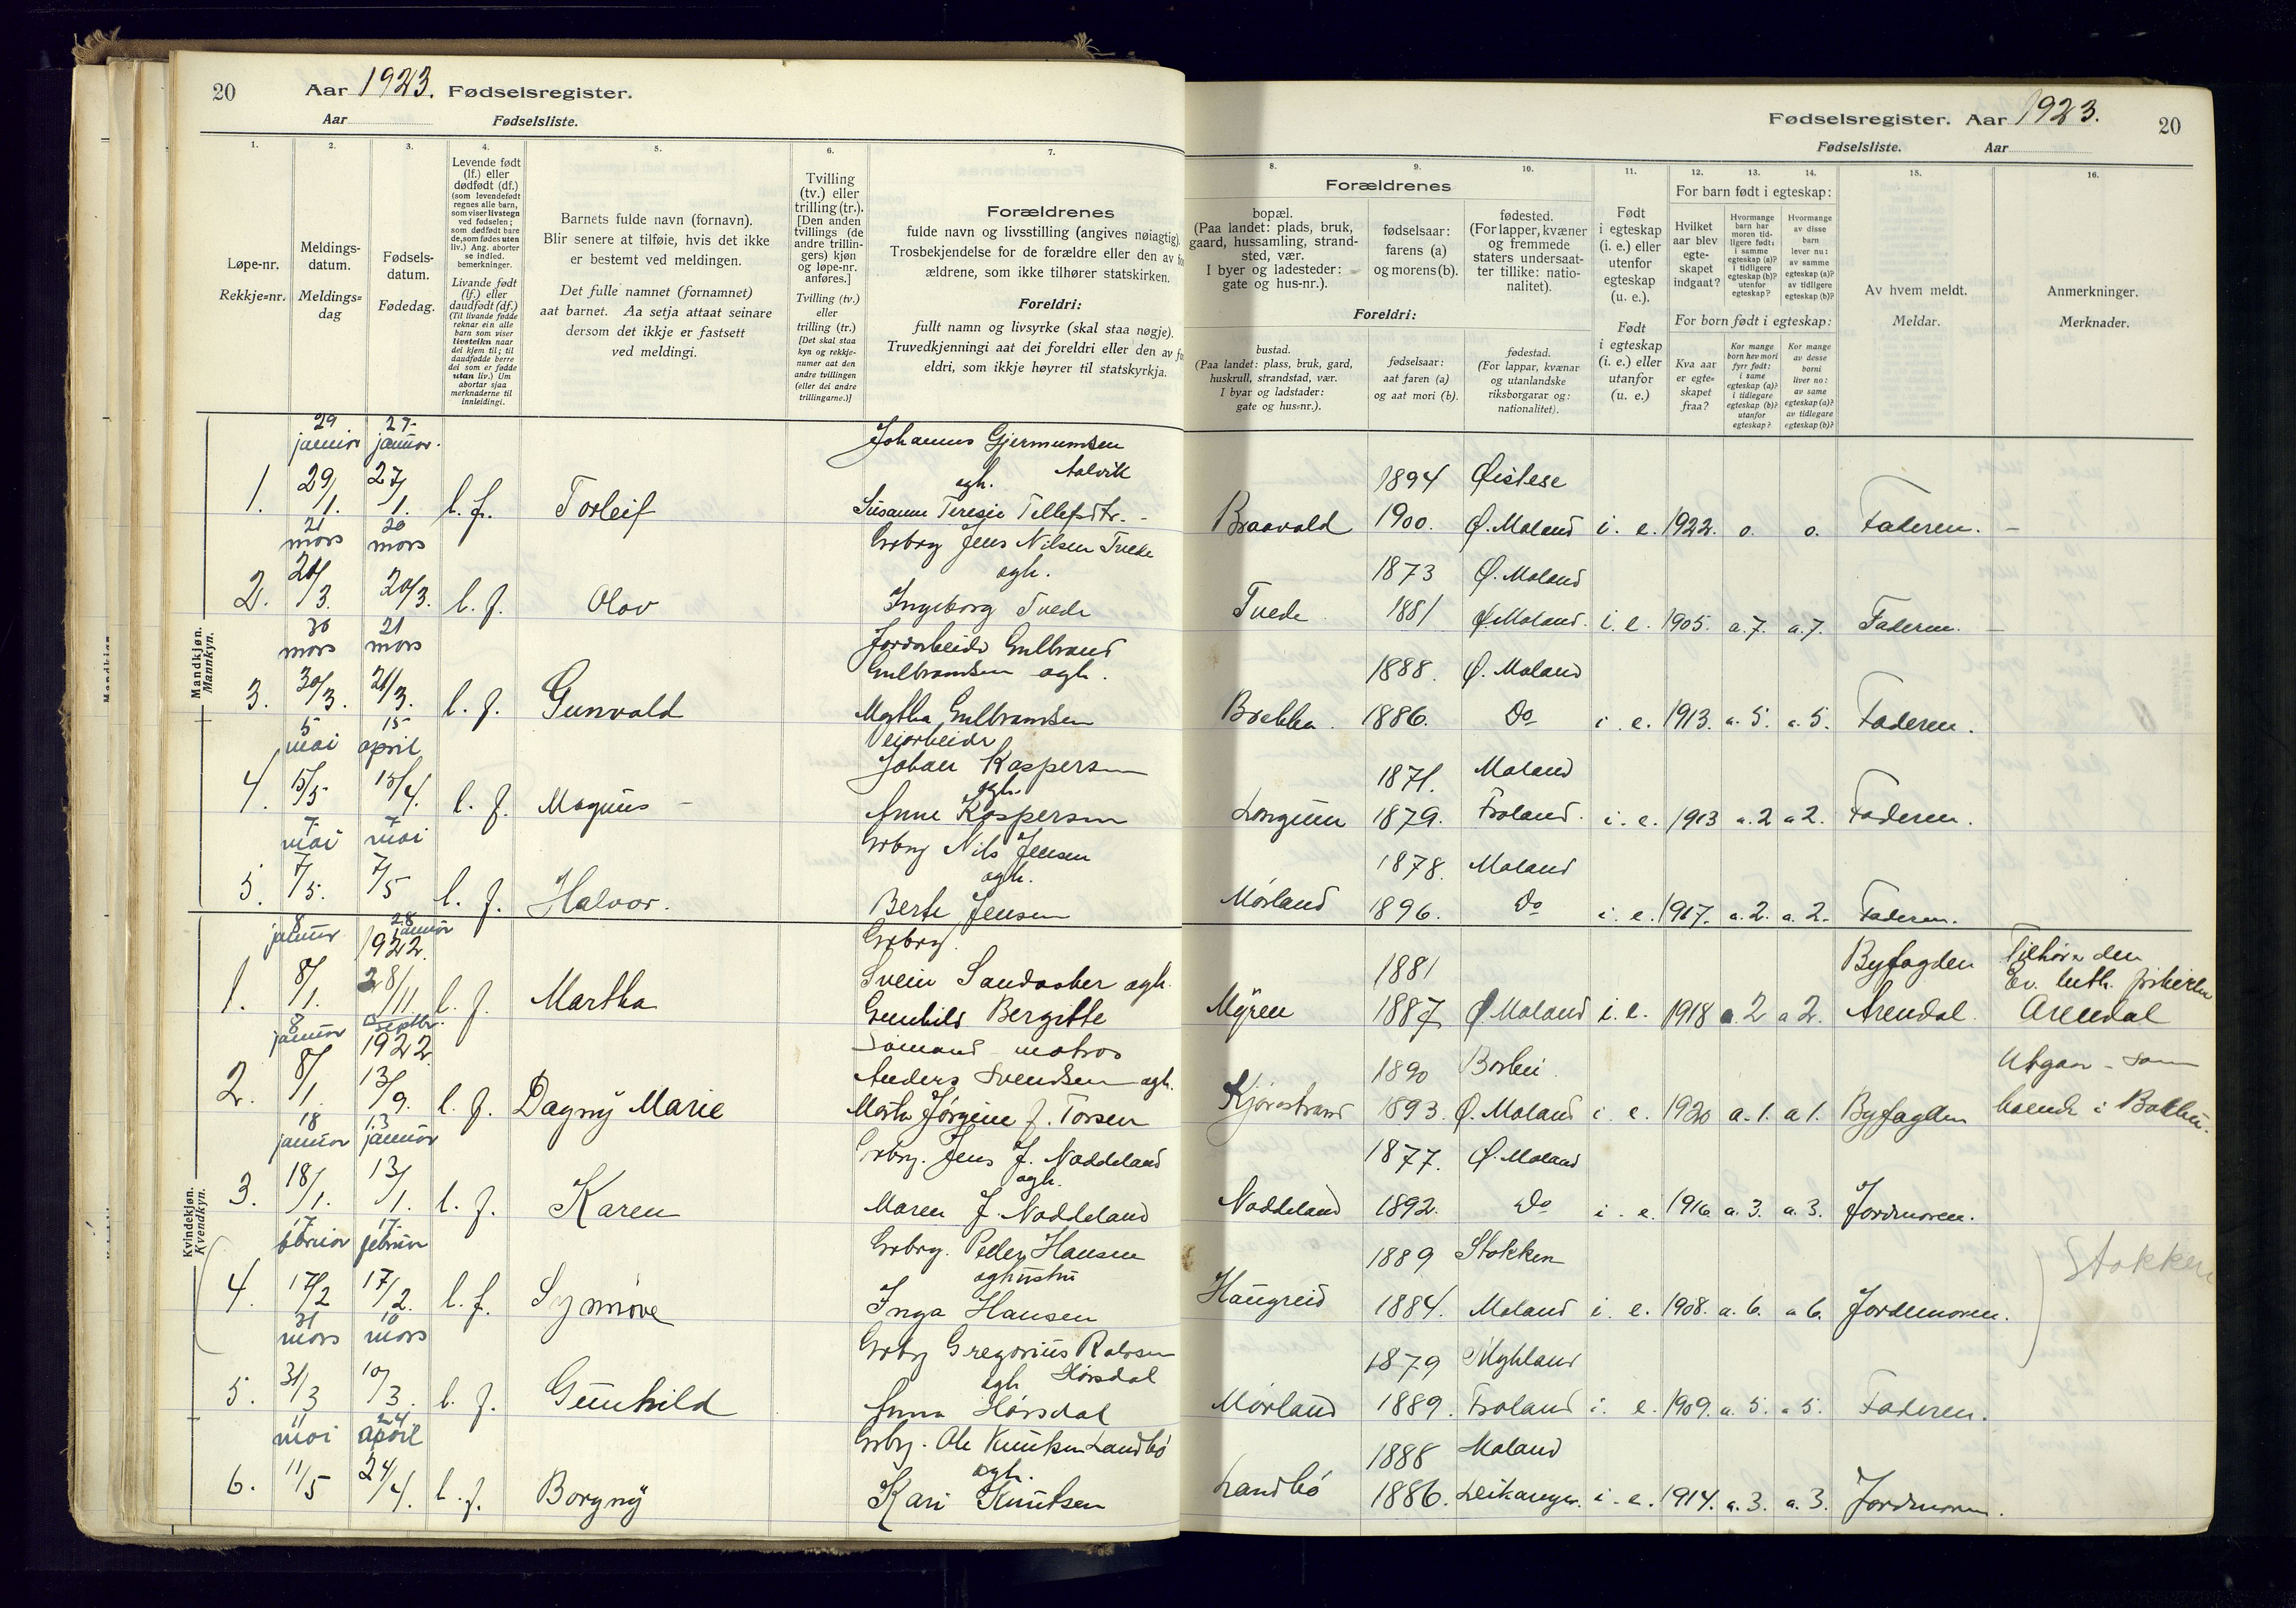 20
Aar 1923. Fødselsregister.
Aar Fødselsliste.
1.
2.
3.
4.
5.
6.
7.
Løpe-nr.
Rekkje=nr.
Meldings-
datum.
Meldings=
dag
Fødsels-
datum.
Fødedag.
Levende født
(lf.) eller
dødfødt (df.)
(som levendefødt
regnes alle barn,
som viser livstegn
ved fødselen;
som dødfødt bare
de, som fødes uten
liv.) Ang. aborter
se indled.
bemerkninger.
Livande født
(lf.) eller
daudfødt (df.)
(Til livande fødde
reknar ein alle
barn som viser
livsteikn naar
dei kjem til; til
daudfødde berre
dei som er fødde
utan liv.) Um
abortar sjaa
merknaderne til
innleidingi.
Barnets fulde navn (fornavn).
Blir senere at tilføie, hvis det ikke
er bestemt ved meldingen.
Det fulle namnet (fornamnet)
aat barnet. Aa setja attaat seinare
dersom det ikkje er fastsett
ved meldingi.
Tvilling
(tv.) eller
trilling (tr.).
[Den anden
tvillings (de
andre trillin-
gers) kjøn
og løpe-nr.
anføres.]
Tvilling (tv.)
eller
trilling (tr.)
[Det skal staa
kyn og rekkje-
numer aat den
andre tvillingen
(eller dei andre
trillingarne.)]
Forældrenes
fulde navn og livsstilling (angives nøiagtig).
Trosbekjendelse for de forældre eller den av
ældrene, som ikke tilhører statskirken.
Foreldri:
fullt namn og livsyrke (skal staa nøgje).
Truvedkjenningi aat dei foreldri eller den av
eldri, som ikkje høyrer til statskyrkja.
Mandkjøn.
Mannkyn.
29 januar 27 januar.
Johannes Gjermundsen
Aalvik
agh.
1. 29/1. 27/1. l. f. Torleif
Susanne Teresie Tellefsdtr.
21 mars 20 mars
Grbrg Jens Nilsen Tvede
agh.
2. 21/3. 20/3. l. f. Olav
Ingeborg Tvede
30 mars 21 mars
Jordarbeider Gulbrand
Gulbrandsen agh.
3. 30/3. 21/3. l. f. Gunvald
Martha Gulbrandsen
5 mai 15 april
Veiarbeider
Johan Kaspersen
agh.
4. 15/5 15/4. l. f. Magnus
Anne Kaspersen
7 mai 7 mai
Grbrg Nils Jensen
agh.
5. 7/5. 7/5 l. f. Halvor.
Berte Jensen
Kvindekjøn.
Kvendkyn.
8 januar 28 januar 1922.
Grbrg.
Svein Sandaaker agh.
1. 8/1. 28/11. l. f. Martha
Gunhild Bergitte
8 januar 13 septbr. 1922
Sømand matros
Anders Svendsen agh.
2. 8/1. 13/9. l. f. Dagny Marie
Marta Jørgine f. Torsen
18 januar 13 januar
Grbrg. Jens J. Naddeland
agh.
3. 18/1. 13/1. l. f. Karen
Maren J. Naddeland
17 februar 17 februar
Grbrg. Peder Hansen
og hustru
4. 17/2 17/2. l. f. Synnøve
Inga Hansen
31 mars 10 mars
Grbrg Gregorius Ralvsen
agh Hørsdal
5. 31/3 10/3. l. f. Gunhild
Anna Hørsdal
11 mai 24 april
Grbrg. Ole Knutsen Landbø
agh.
6. 11/5 24/4. l. f. Borgny
Kari Knutsen
Fødselsregister. Aar 1923.
20
Fødselsliste. Aar
8.
9.
10.
11.
12.
13.
14.
15.
16.
Forældrenes
bopæl.
(Paa landet: plads, bruk,
gaard, hussamling, strand-
sted, vær.
I byer og ladesteder:
gate og hus-nr.).
fødselsaar:
farens (a)
og morens (b).
fødested.
(For lapper, kvæner
og fremmede
staters undersaat-
ter tillike: natio-
nalitet).
Foreldri:
bustad.
(Paa landet: plass, bruk, gard,
huskrull, strandstad, vær.
I byar og ladstader:
gate og hus=nr.).
fødselsaar:
aat faren (a)
og aat mori (b).
fødestad.
(For lappar, kvænar
og utanlandske
riksborgarar og:
nationalitet).
Født
i egteskap
(i. e.) eller
utenfor
egteskap
(u. e.).
Født
i egteskap
(i. e.) eller
utanfor
(u. e.)
For barn født i egteskap:
Hvilket
aar blev
egte-
skapet
indgaat?
Hvormange
barn har
moren tid-
ligere født:
i samme
egteskap (a)?
i tidligere
egteskap (b)?
utenfor
egteskap?
Hvormange
av disse
barn
lever nu:
av samme
egteskap (a)?
av tidligere
egteskap (b)?
For born født i egteskap:
Kva aar
er egte=
skapet
fraa?
Kor mange
born hev mori
fyrr født:
i same
egteskap (a)?
i tidlegare
egteskap (b)?
utanfor
egteskap?
Kor mange
av desse
borni
liver no:
av same
egteskap (a)?
av tidlegare
egteskap (b)?
Av hvem meldt.
Meldar.
Anmerkninger.
Merknader.
1894 Øistese
Braavold 1900. Ø. Moland i. e. 1922. o. o. Faderen. –
1873 Ø. Moland
Tvede 1881 Ø. Moland. i. e. 1905. a. 7. a. 7. Faderen. –
1888. Ø. Moland
Brekka 1886. Do i. e. 1913. a. 5. a. 5. Faderen.
1871. Moland
Longum 1879. Froland. i. e. 1913 a. 2 a 2. Faderen.
1878. Moland
Mørland 1896. Do i. e. 1917. a. 2. a. 2. Faderen.
1881 Byfogden Tilhører den
Ev. luth. frikirke
Myren 1887 Ø Moland i. e. 1918 a. 2 a 2. Arendal. Arendal
1890 Utgaar – som
Kjørestrand 1893. Ø. Moland i. e. 1920 a. 1. a 1. Byfogden boende i
1877. Ø. Moland
Naddeland 1892. Do i. e. 1916 a. 3. a. 3. Jordmoren.
1889 Stokken
Haugreid 1884. Moland i. e. 1908. a. 6. a 6. Jordemoren. Stokken
1879 Mykland
Mørland 1889. Froland i. e. 1909. a. 5. a 5. Faderen.
1888 Moland
Landbø 1886. Leikanger. i. e. 1914. a. 3. a. 3. Jordmoren.